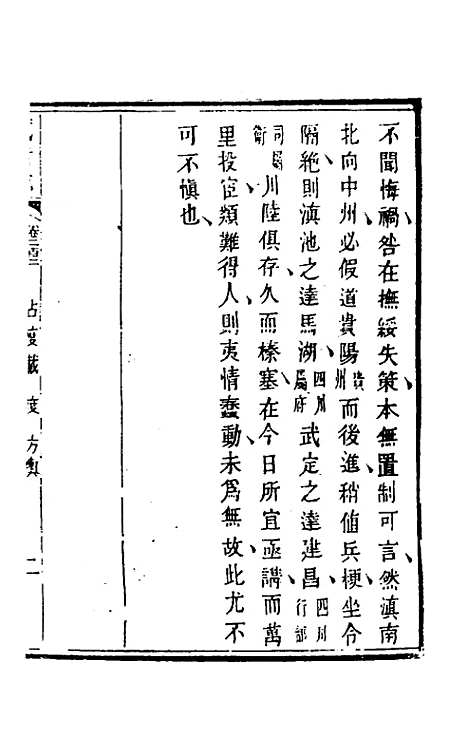 不聞悔禍咎在撫綏失策本無置制可言然滇南
北向中州必假道貴陽貴州而後進稍值兵梗坐令
隔絶則滇池之達馬湖四川屬府武定之達建昌四川行都
司屬衛川陸俱存久而榛塞在今日所宜亟講而萬
里投宦類難得人則夷情蠢動未爲無故此尤不
可不慎也
占度載 度 方輿 二